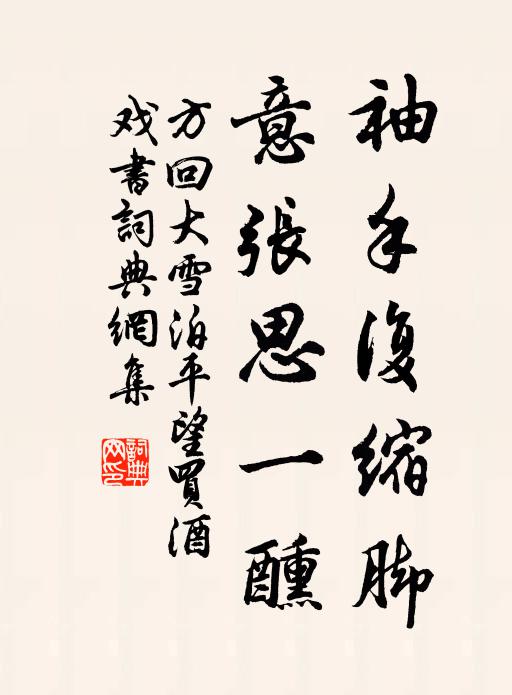 袖手復縮脚
意張思一醺
方回大雪泊平望買酒
戏書詞典網集
詞典网印